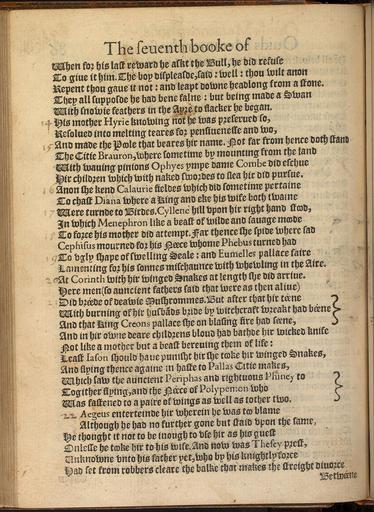 The seuenth booke of
When for his last reward he askt the Bull, he did refuse
To giue it him. The boy displeasde, said: well: thou wilt anon
Repent thou gaue it not: and leapt downe headlong from a stone.
They all supposde he had bene falne: but being made a Swan
With snowie feathers in the Ayre to flacker he began.
14 His mother Hyrie knowing not he was preserued so,
Resolued into melting teares for pensiuenesse and wo,
And made the Poole that beares hir name. Not far from hence doth stand
15 The Citie Brauron, where sometime by mounting from the land
With wauing pinions Ophyes ympe dame Combe did eschue
Hir children which with naked swordes to slea hir did pursue.
16 Anon she kend Calaurie fieldes which did sometime pertaine
To chast Diana where a King and eke his wife both twaine
17 Were turnde to Birdes. Cyllene hill vpon hir right hand stood,
In which Menephron like a beast of wilde and sauage moode
18 To force his mother did attempt. Far thence she spide where sad
Cephisus mourned for his Neece whome Phebus turned had
19 To vgly shape of swelling Seale: and Eumelles pallace faire
Lamenting for his sonnes mischaunce with whewling in the Aire.
20 At Corinth with hir winged Snakes at length she did arriue.
Here men (so auncient fathers said that were as then aliue)
Did breede of deawie Mushrommes. But after that hir teene
With burning of hir husbāds bride by witchcraft wreakt had beene
And that King Creons pallace she on blasing fire had seene,
And in hir owne deare childrens bloud had bathde hir wicked knife
Not like a mother but a beast bereuing them of life:
Least Iason should haue punisht hir she tooke hir winged Snakes,
And flying thence againe in haste to Pallas Citie makes,
Which saw the auncient Periphas and rightuous Phiney to
Togither flying, and the Neece of Polypemon who
Was fastened to a paire of wings as well as tother two.
22 Aegeus enterteinde hir wherein he was too blame
Although he had no further gone but staid vpon the same,
He thought it not to be inough to vse hir as his guest
Onlesse he tooke hir to his wife. And now was Thesey prest,
Unknowne vnto his father yet, who by his knightly force
Had set from robbers cleare the balke that makes the streight diuorce
Betweene